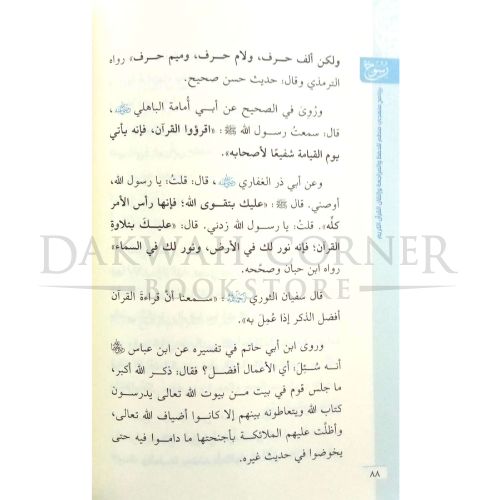 ولكن ألف حرف، ولام حرف، وميم حرف» رواه
الترمذي وقال: حديث حسن صحيح.
ورُوِيَ في الصحيح عن أبي أُمامة الباهلي رضي الله عنه،
قال: سمعتُ رسول الله ﷺ: «اقرؤوا القرآن، فإنه يأتي
يوم القيامة شفيعًا لأصحابه».
وعن أبي ذر الغفاري رضي الله عنه، قال: قلتُ: يا رسول الله،
أوصني. قال ﷺ: «عليك بتقوى الله؛ فإنها رأس الأمر
كلّه». قلتُ: يا رسول الله زدني. قال: «عليـكَ بتلاوةِ
القرآن؛ فإنه نور لك في الأرض، ونور لك في السماء»
رواه ابن حبان وصحَّحه.
قال سفيان الثوري: «سـمعنا أنَّ قراءةَ القرآن
أفضل الذكر إذا عُمِلَ به».
وروى ابن أبي حاتم في تفسيره عن ابن عباس
أنـه سُـئِلَ: أي الأعمال أفضـل؟ فقال: ذكـر الله أكبر،
ما جلس قوم في بيت مـن بيوت الله تعالى يدرسـون
كتاب الله ويتعاطونه بينهم إلا كانـوا أضياف الله تعالى،
وأظلَّت عليهم الملائكـة بأجنحتها ما دامـوا فيه حتى
يخوضوا في حديث غيره.
٨٨
رسوخ
DAKWAH CORNER
BOOKSTORE